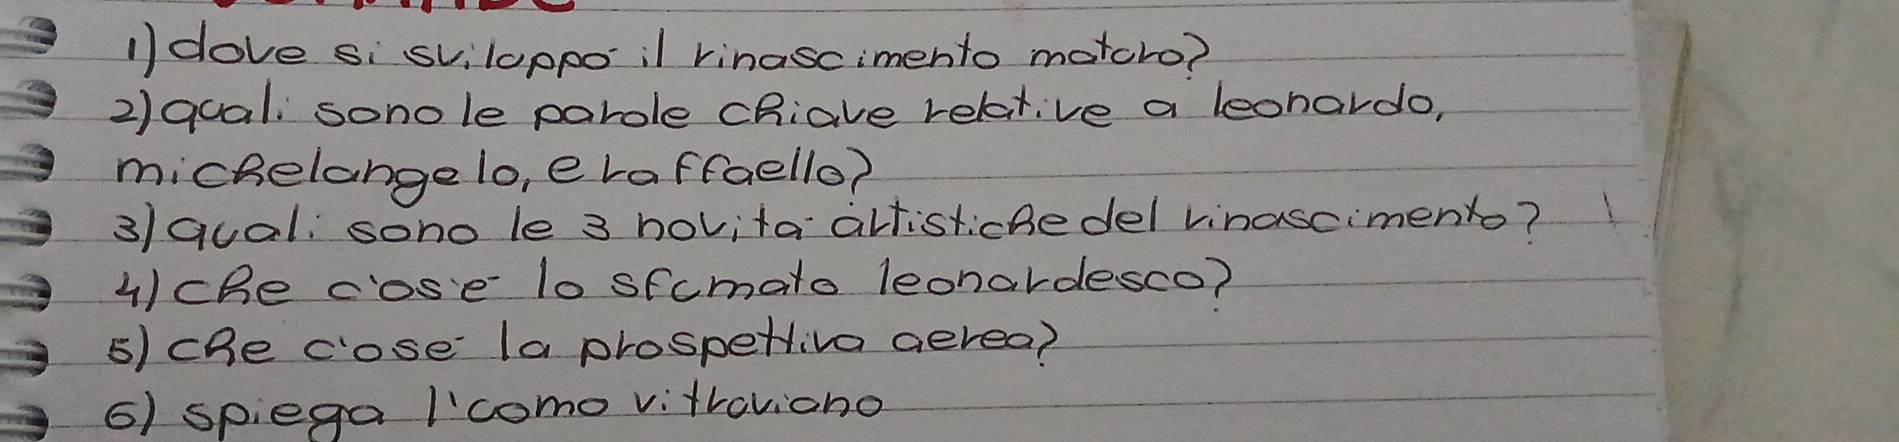 1) dove si sviluppò il rinascimento maturo?
2) quali sono le parole chiave relative a leonardo,
michelangelo, e raffaello?
3) quali sono le 3 novità artistiche del rinascimento?
4) che cos'è lo sfumato leonardesco?
5) che c'osè la prospettiva aerea?
6) spiega l'uomo vitruviano